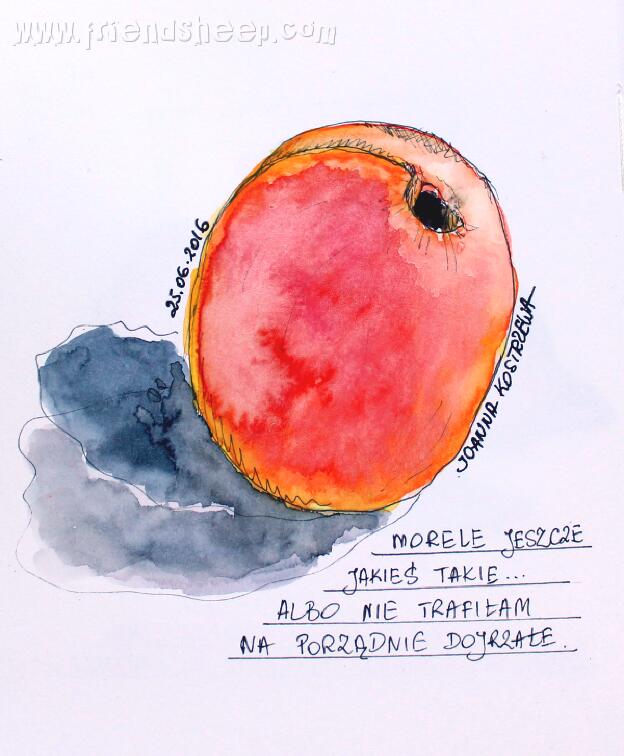 www.friendsheep.com
25.06.2016
JOANNA KOSTRZEWA
MORELE JESZCZE
JAKIEŚ TAKIE...
ALBO NIE TRAFIŁAM
NA PORZĄDNIE DOJRZAŁE.